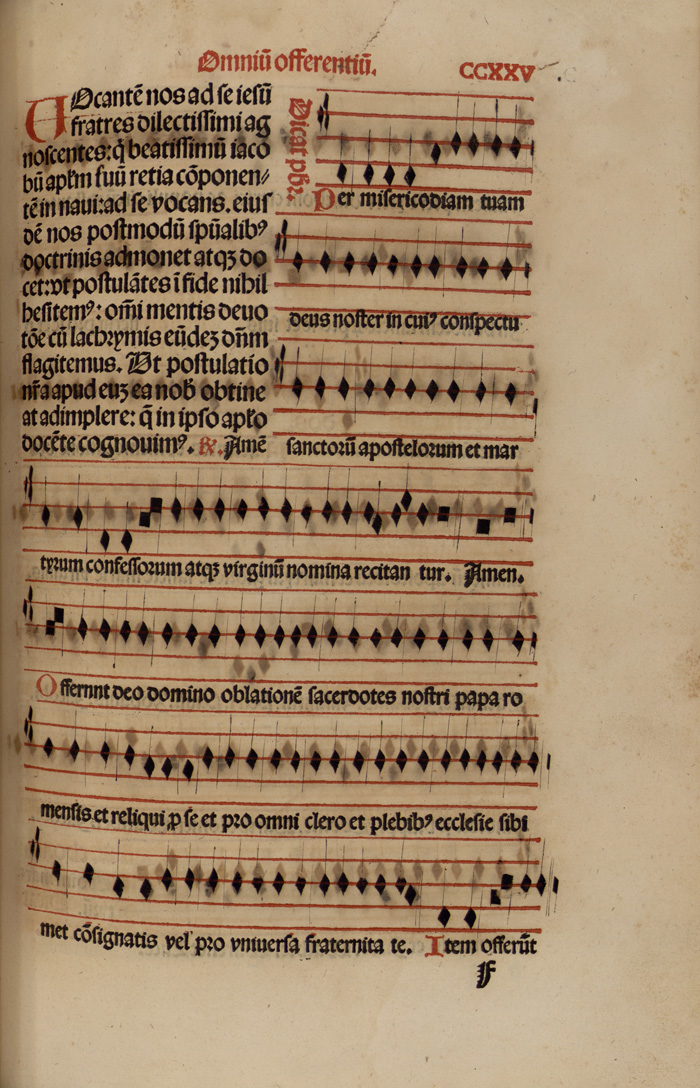 Omniū offerentiū.
CCXXV
VOcantē nos ad se iesū
fratres dilectissimi ag
noscentes: q̄ beatissimū iaco
bū apl̄m suū retia cōponen⸗
tē in naui: ad se vocans. eius
dē nos postmodū spūalibꝰ
doctrinis admonet atqꝫ do
cet: vt postulātes ī fide nihil
hesitemꝰ: om̄i mentis deuo
tōe cū lachrymis eūdeꝫ dn̄m
flagitemus. Vt postulatio
nr̄a apud euꝫ ea nob̄ obtine
at adimplere: q̄ in ipso apl̄o
docēte cognouimꝰ. ℟. Amē
Dicat pb̄r.
Per misericodiam tuam
deus noster in cuiꝰ conspectu
sanctorū apostelorum et mar
tyrum confessorum atqꝫ virginū nomina recitan tur. Amen.
Offernnt deo domino oblationē sacerdotes nostri papa ro
mensis et reliqui ꝓ se et pro omni clero et plebibꝰ ecclesie sibi
met cōsignatis vel pro vniuersa fraternita te. Item offerūt
F